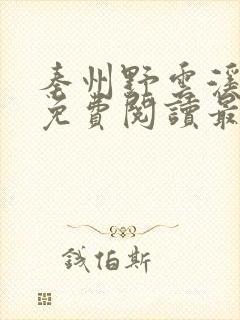 秦州野雲溪
免費閱讀最
錢伯斯